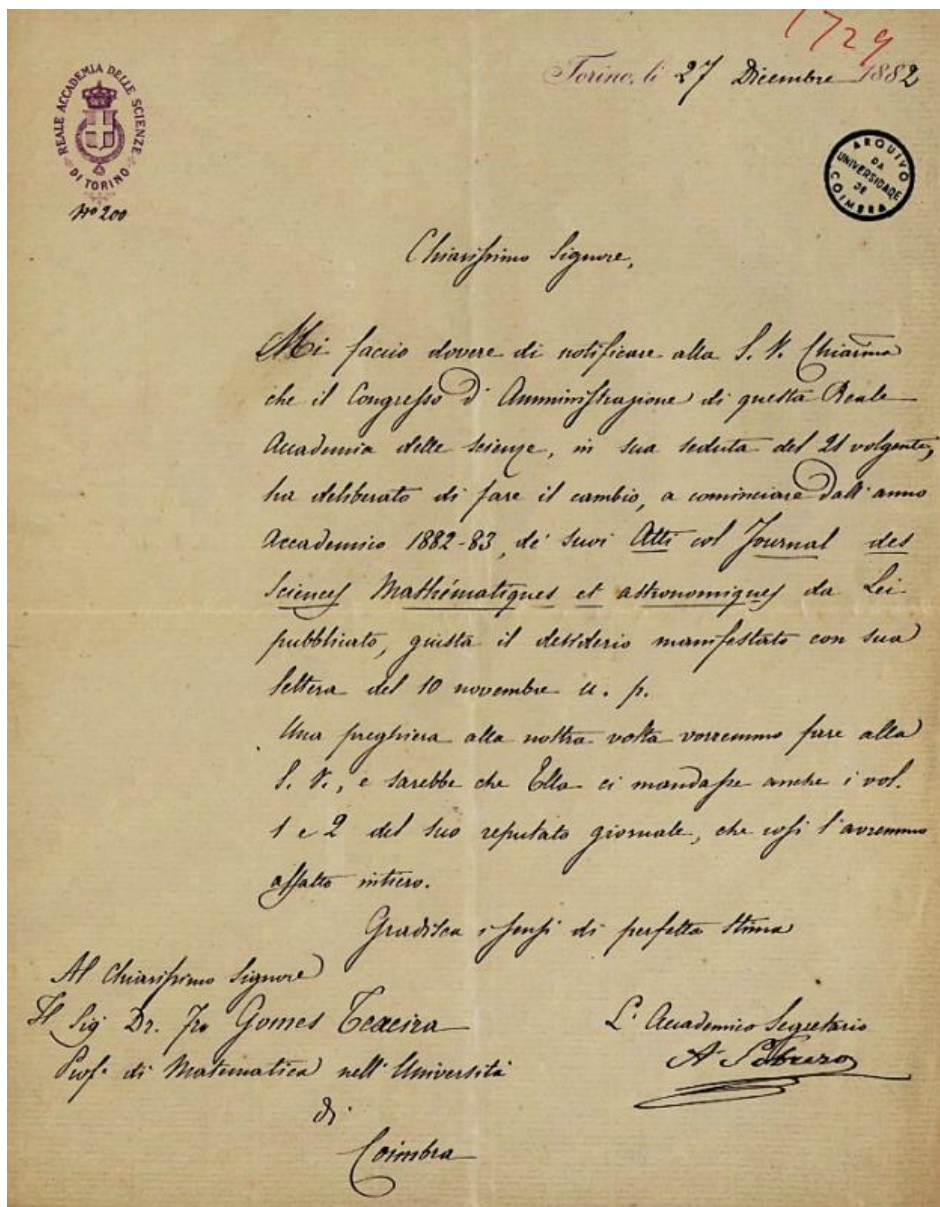 1729
Torino, li 27 Dicembre 1882
REALE ACCADEMIA DELLE SCIENZE
DI TORINO
No 200
ARQUIVO
DA
UNIVERSIDADE
DE
COIMBRA
Chiarissimo Signore,
Mi faccio dovere di notificare alla S. V. Chiar̄ma
che il Congresso d'Amministrazione di questa Reale
Accademia delle scienze, in sua seduta del 21 volgente,
ha deliberato di fare il cambio, a cominciare dall'anno
Accademico 1882-83, de' suoi Atti col Journal des
Sciences Mathématiques et astronomiques da Lei
pubblicato, giusta il desiderio manifestato con sua
lettera del 10 novembre u. p.
Una preghiera alla nostra volta vorremmo fare alla
S. V., e sarebbe che Ella ci mandasse anche i vol.
1 e 2 del suo reputato giornale, che così l'avremmo
affatto intiero.
Gradisca i sensi di perfetta stima
Al Chiarissimo Signore
Il Sig Dr. Fro Gomes Texeira
Prof. di Matematica nell'Università
di
Coimbra
L'Accademico Segretario
A Sobrero